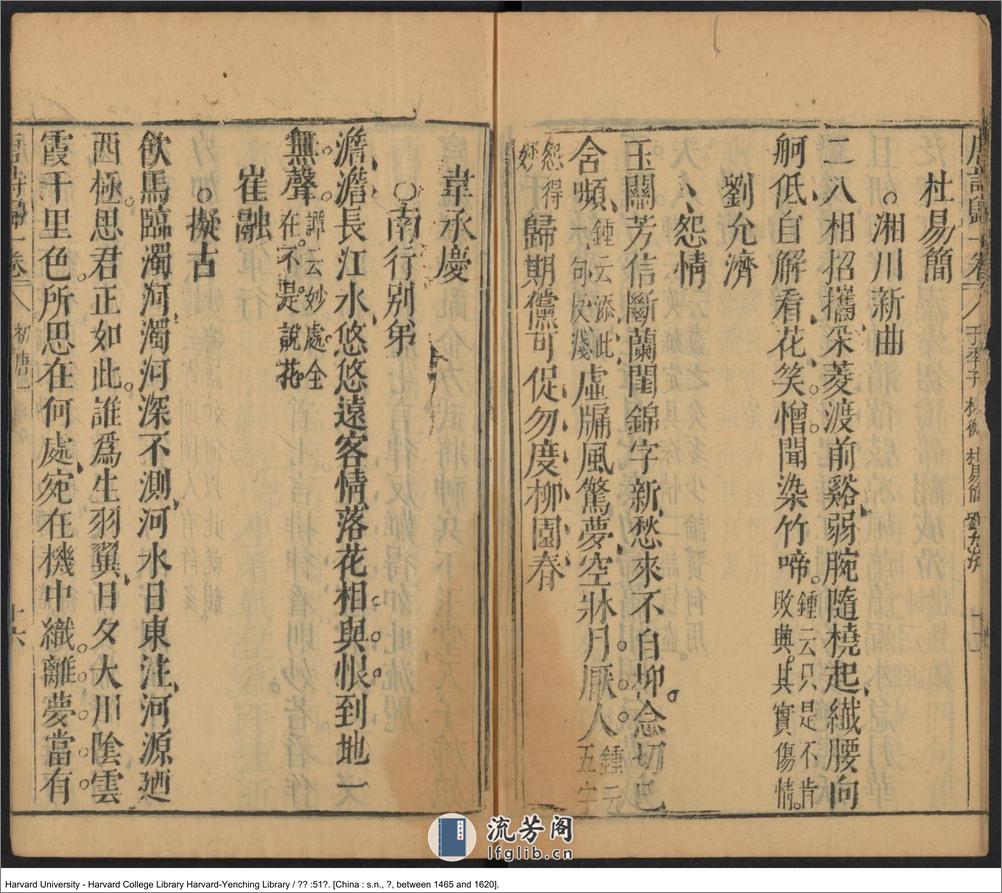 唐詩歸一卷 八 于季子 杜易簡
杜易簡
湘川新曲
二八相招攜采菱渡前谿弱腕隨橈起纎腰向
舸低自解看花笑憎聞染竹啼鍾云只是不肯敗興其實傷情
劉允濟
怨情
玉關芳信斷蘭閨錦字新愁來不自抑念切已
含嚬鍾云添此一句反淺虛牖風驚夢空牀月厭人鍾云五字
怨得妙歸期儻可促勿度柳園春
韋承慶
南行别弟
澹澹長江水悠悠遠客情落花相與恨到地一
無聲譚云妙處全在不是說花
崔融
擬古
飲馬臨濁河濁河深不測河水日東注河源廼
西極思君正如此誰爲生羽翼日夕大川陰雲
霞千里色所思在何處宛在機中織離夢當有
唐詩歸一卷 八 初唐一 十六
流芳阁
lfglib.cn
Harvard University - Harvard College Library Harvard-Yenching Library / ?? :51?. [China : s.n., ?, between 1465 and 1620].